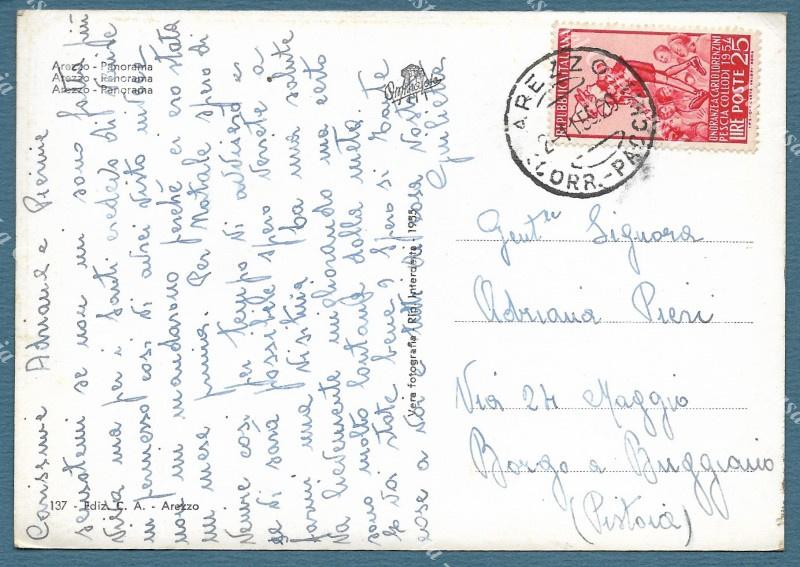 Arezzo - Panorama
Arezzo - Panorama
Arezzo - Panorama
Omniafoto
REPUBBLICA ITALIANA
ONORANZE A CARLO LORENZINI
PESCIA COLLODI 1954
LIRE POSTE 25
AREZZO
CORR.-PACCHI
Carissime Adriana e Pierine
scusatemi se non mi sono fatta più
viva ma per i Santi credevo di venire
in permesso così vi avrei visto invece
non mi mandarono perché ci ero stata
un mese prima. Per Natale spero di
venire così per tempo vi avviserò e
se vi sarà possibile spero verrete a
farmi una visitina. La mia salute
va lievemente migliorando ma certo
sono molto lontana dalla meta.
e voi state bene? Spero si. Tante
cose a voi e tutti di casa vostra
Giulietta
Gent.re Signora
Adriana Pieri
Via 24 Maggio
Borgo a Buggiano
(Pistoia)
Vera fotografia - Rip. Interdette - 1955
137 - Ediz. C. A. - Arezzo